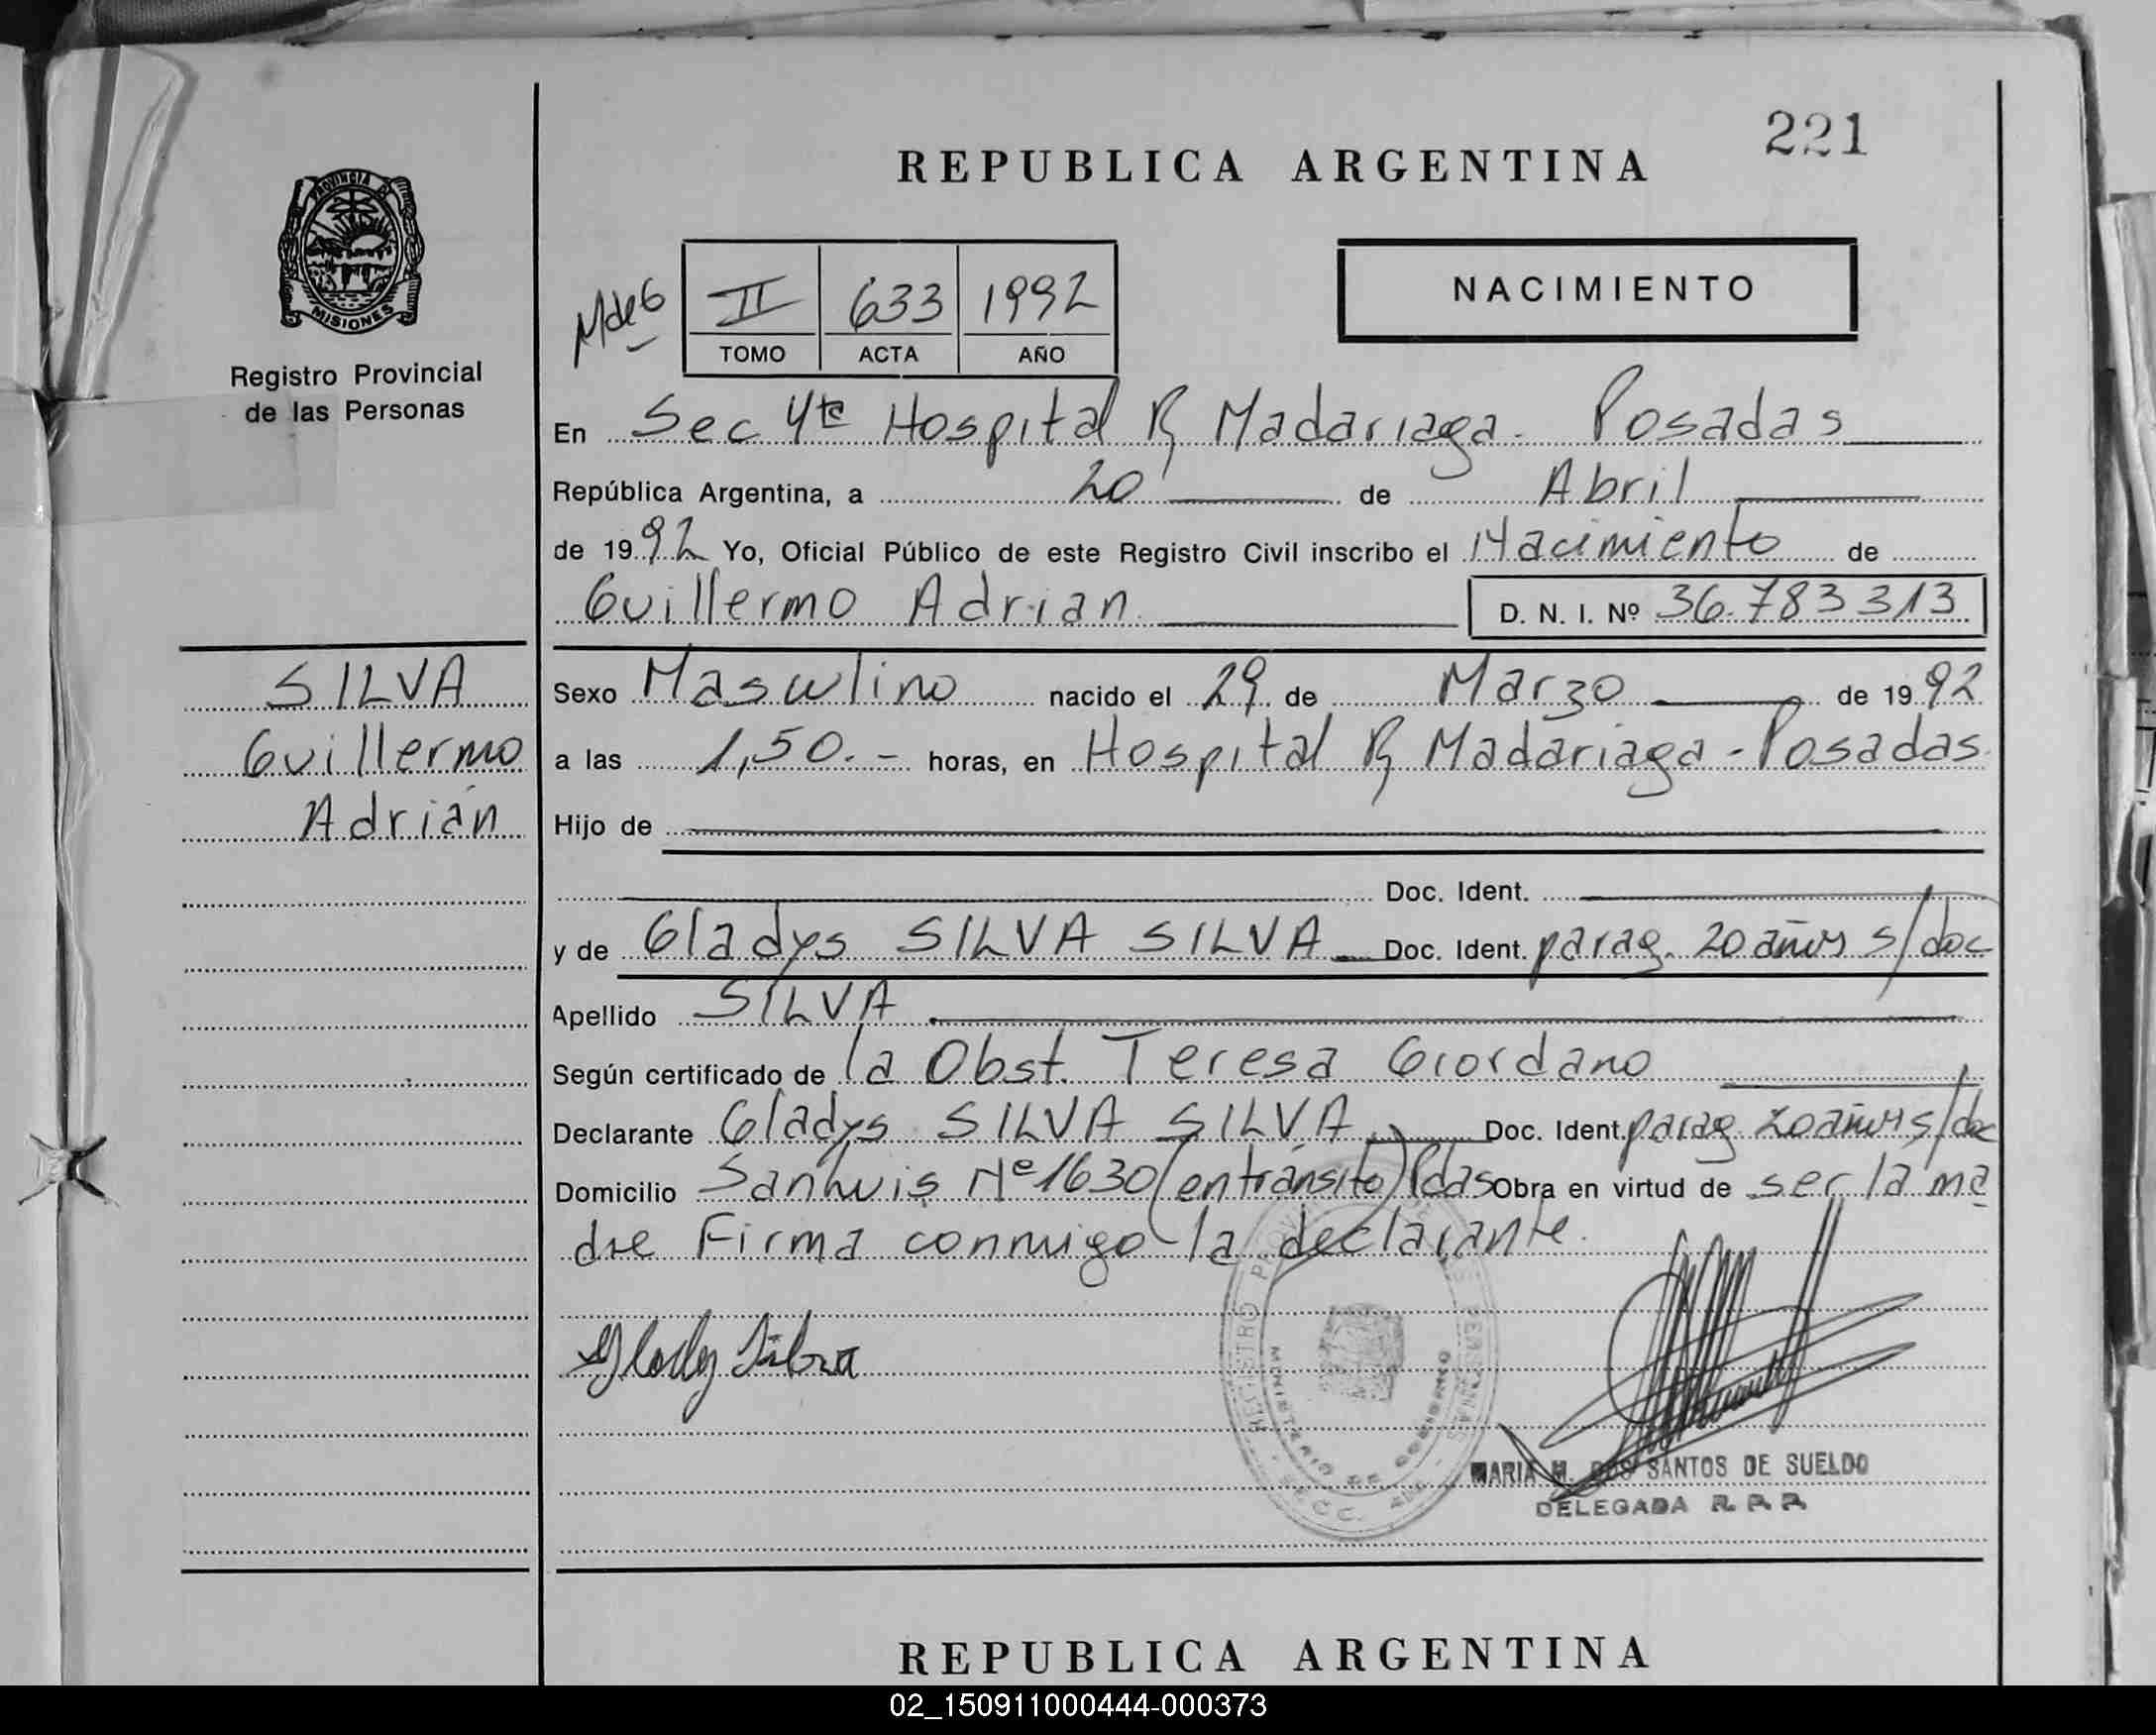 221
REPUBLICA ARGENTINA
PROVINCIA DE
MISIONES
Registro Provincial
de las Personas
NACIMIENTO
MdeG
II 633 1992
TOMO ACTA AÑO
En Sec 4ta Hospital R Madariaga - Posadas
República Argentina, a 20 de Abril
de 1992 Yo, Oficial Público de este Registro Civil inscribo el Nacimiento de
Guillermo Adrian D. N. I. Nº 36.783313
SILVA
Guillermo
Adrián
Sexo Masculino nacido el 29 de Marzo de 1992
a las 1,50.- horas, en Hospital R Madariaga - Posadas
Hijo de
Doc. Ident.
y de Gladys SILVA SILVA Doc. Ident. parag. 20 años s/doc
Apellido SILVA
Según certificado de la Obst. Teresa Giordano
Declarante Gladys SILVA SILVA Doc. Ident. parag 20 años s/doc
Domicilio San Luis Nº 1630 (en tránsito) Pdas Obra en virtud de ser la ma
dre Firma conmigo la declarante.
Glady Silva
REGISTRO PROV PERSONAS
MINISTERIO DE GOBIERNO
MARIA M. DOS SANTOS DE SUELDO
DELEGADA R. P. P.
REPUBLICA ARGENTINA
02_150911000444-000373